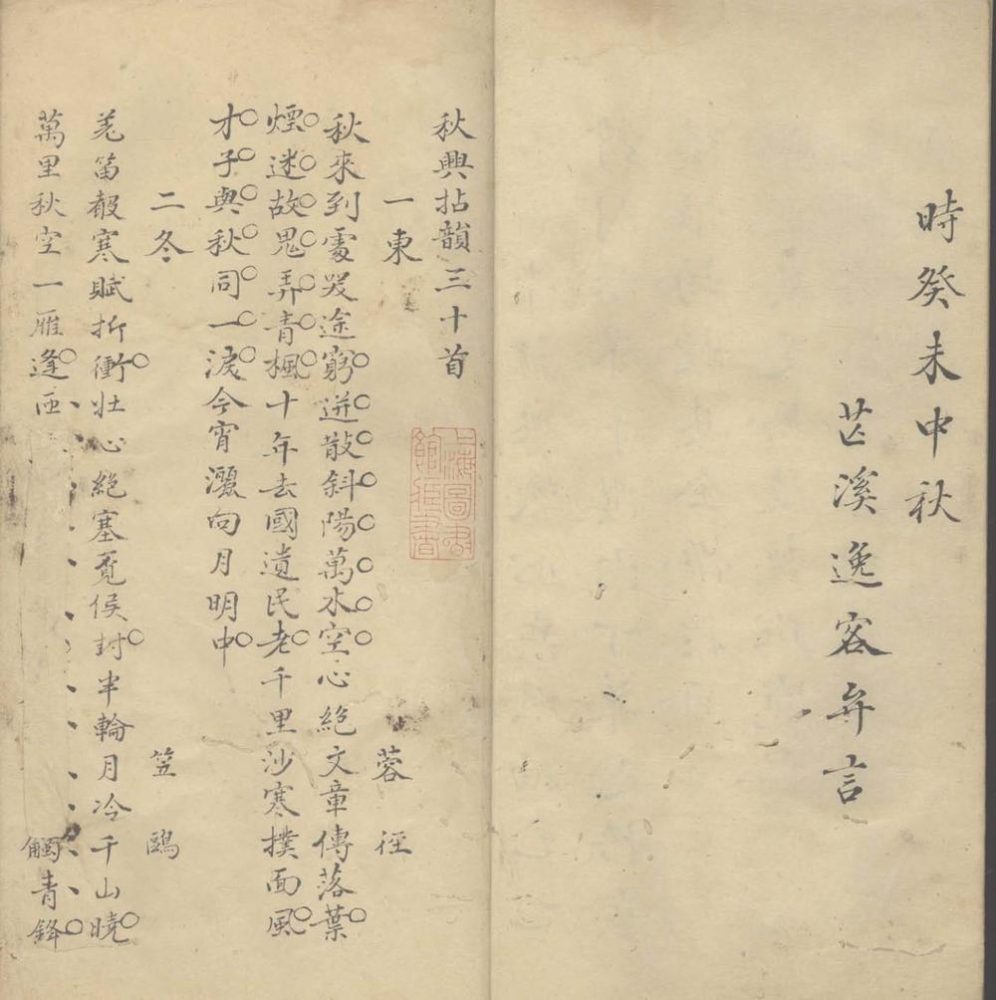 時癸未中秋
芷溪逸客弁言
秋興拈韻三十首
一東　蓉徑
秋來到處哭途窮迸散斜陽萬水空心絕文章傳落葉
煙迷故鬼弄青楓十年去國遺民老千里沙寒撲面風
才子與秋同一淚今宵灑向月明中
二冬　笠鷗
羌笛報寒賦折衝壯心絕塞覓侯封半輪月冷千山曉
萬里秋空一雁逢匝　觸青鋒
上海圖書館藏書